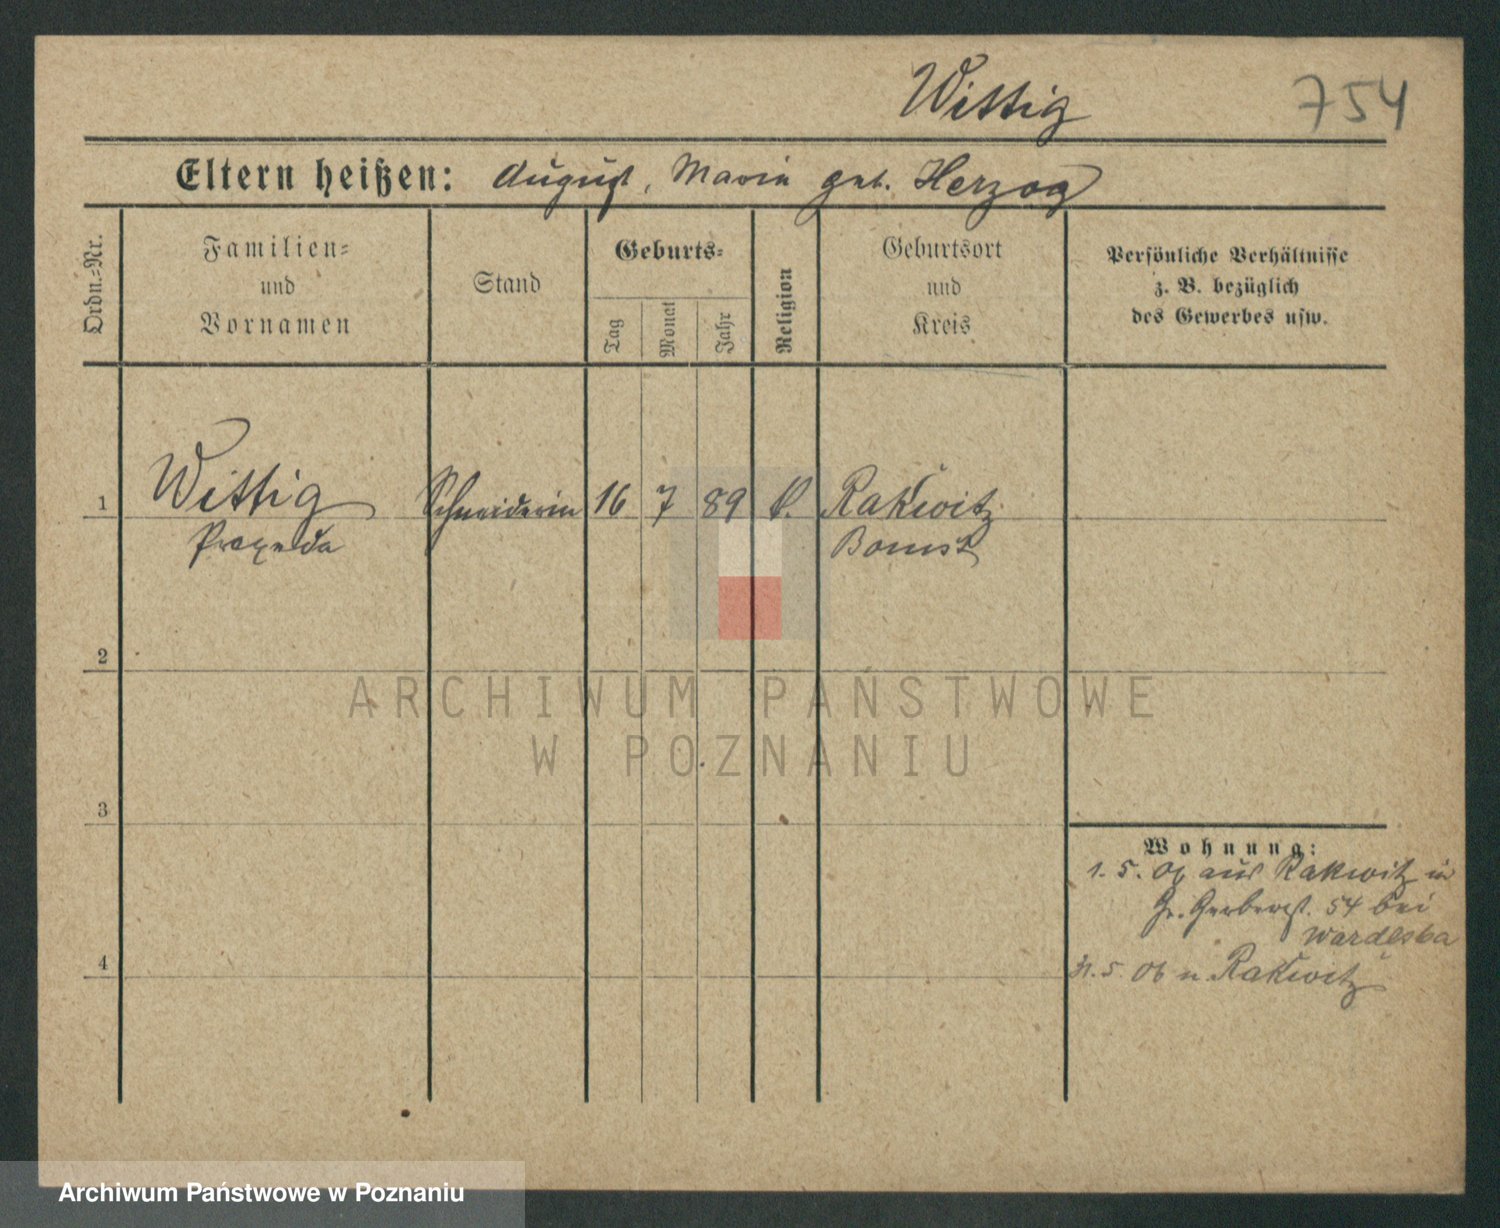 Wittig 754
Eltern heißen: August, Maria geb. Herzog
Ordn.-Nr.
Familien-
und
Vornamen
Stand
Geburts-
Tag
Monat
Jahr
Religion
Geburtsort
und
Kreis
Persönliche Verhältnisse
z. B. bezüglich
des Gewerbes usw.
1 Wittig Schneiderin 16 7 89 k. Rakwitz
Praxeda Bomst
2
ARCHIWUM PAŃSTWOWE
W POZNANIU
3
Wohnung:
1. 5. 06 aus Rakwitz in
Gr. Gerberst. 54 bei
5 06 n. Rakwitz
4
Archiwum Państwowe w Poznaniu